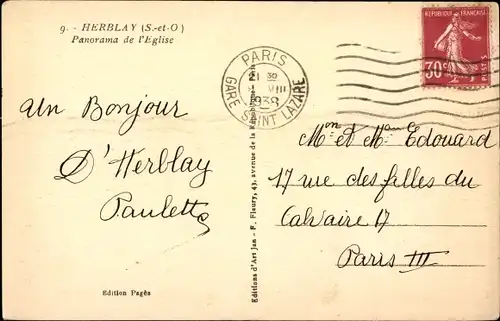 9. - HERBLAY (S.-et-O)
Panorama de l'Eglise
PARIS
21 30
VIII
1938
GARE SAINT LAZARE
REPUBLIQUE FRANÇAISE
30c
POSTES
Un Bonjour
D'Herblay
Paulette
Mon et Mam Edouard
17 rue des filles du
Calvaire 17
Paris III
Editions d'Art Jan - F. Fleury, 43, avenue de la République
Edition Pagès